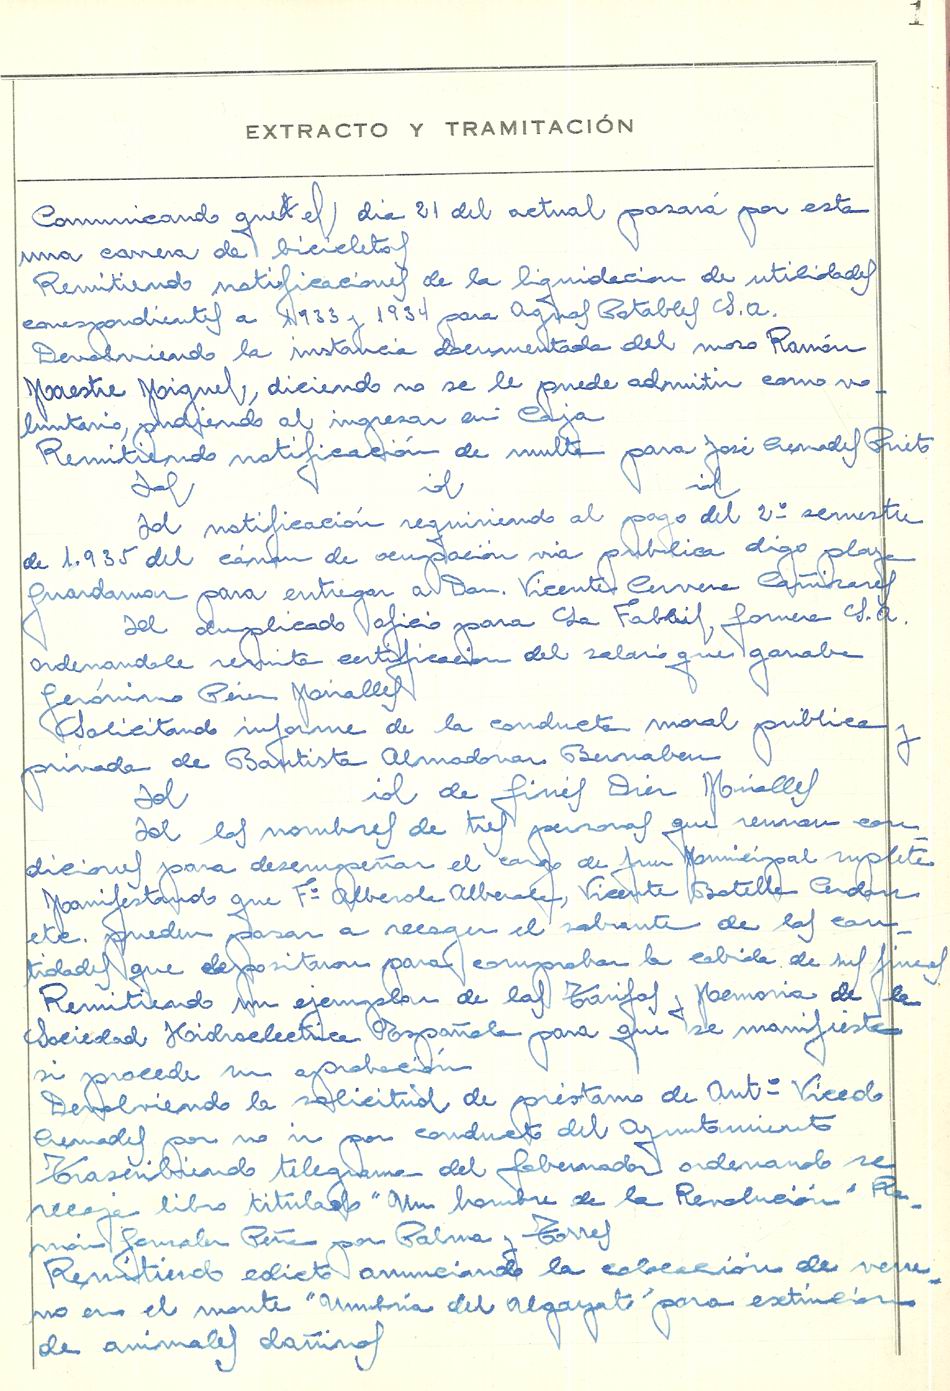 1
EXTRACTO Y TRAMITACIÓN
Comunicando que el dia 21 del actual pasará por esta
una carrera de bicicletas
Remitiendo notificaciones de la liquidacion de utilidades
correspondientes a 1933 y 1934 para Aguas Potables S.A.
Devolviendo la instancia documentada del mozo Ramón
Maestre Moiguel, diciendo no se le puede admitir como vo-
luntario, pudiendo al ingresar en Caja
Remitiendo notificación de multa para José Cremades Prieto
Id id id
Id notificación requiriendo al pago del 2º semestre
de 1.935 del cánon de ocupación via publica digo playa
Guardamar para entregar a Don. Vicente Cervera Cañizares
Id duplicado oficio para La Fabbil, fornera S.A.
ordenandole remita certificacion del salario que ganaba
Gerónimo Pérez Miralles
Solicitando informe de la conducta moral publica y
privada de Bautista Almodovar Bernabeu
Id id de Ginés Diez Miralles
Id los nombres de tres personas que reunan con-
diciones para desempeñar el cargo de Juez Municipal suplete
Manifestando que Fº Alberola Alberola, Vicente Botella Cerdan
etc. pueden pasar a recoger el sobrante de las can-
tidades que depositaron para comprobar la cabida de sus fincas
Remitiendo un ejemplar de las Tarifas y Memoria de la
Sociedad Hidroelectrica Española para que se manifieste
si procede su aprobación
Devolviendo la solicitud de préstamo de Antº Vicedo
Cremades por no ir por conducto del Ayuntamiento
Trascribiendo telegrama del Gobernador ordenando se
recoja libro titulado "Un hombre de la Revolución" Ra-
món Gonzalez Peña por Palma y Torres
Remitiendo edicto anunciando la colocación de vene-
no en el monte "Umbria del Algayat" para extinción
de animales dañinos